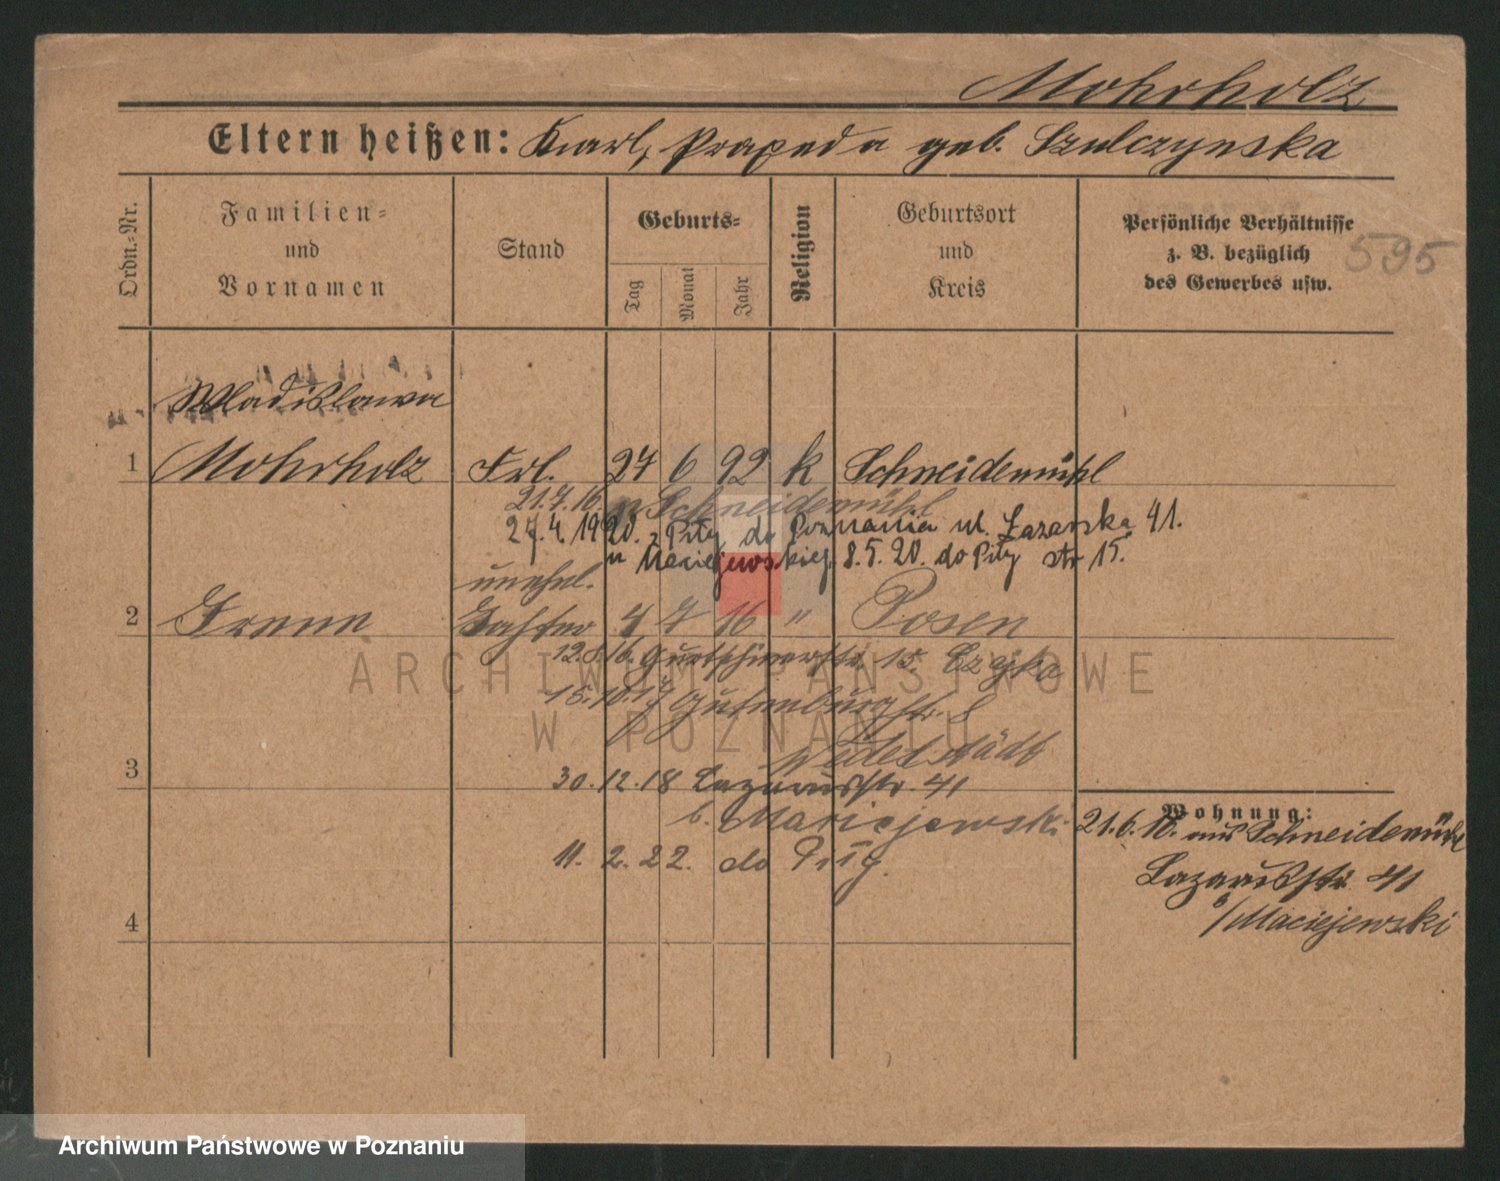 Mohrholz
Eltern heißen: Karl, Praxeda geb. Szulczynska
Ordn.-Nr.
Familien- und Vornamen
Stand
Geburts-
Tag
Monat
Jahr
Religion
Geburtsort und Kreis
Persönliche Verhältnisse
z. B. bezüglich
des Gewerbes usw.
595
Wladislawa
1 Mohrholz Frl. 27 6 92 k Schneidemühl
21.7.16. n Schneidemühl
27.4.1920. z Piły do Poznania ul. Łazarska 41.
u Maciejewskiej. 8.5.20. do Piły str 15.
unehel.
2 Irene Tochter 4 7 16 " Posen
12.8.16. Gurtschinerstr. 15. Czajka
15.10.17 Gutenbergstr. 8
Wedelstädt
3
30.12.18 Lazarusstr. 41
b. Maciejewski
11. 2. 22. do Piły.
Wohnung:
21.6.16. aus Schneidemühl
Lazarusstr. 41
b/Maciejewski
4
ARCHIWUM PAŃSTWOWE
W POZNANIU
Archiwum Państwowe w Poznaniu